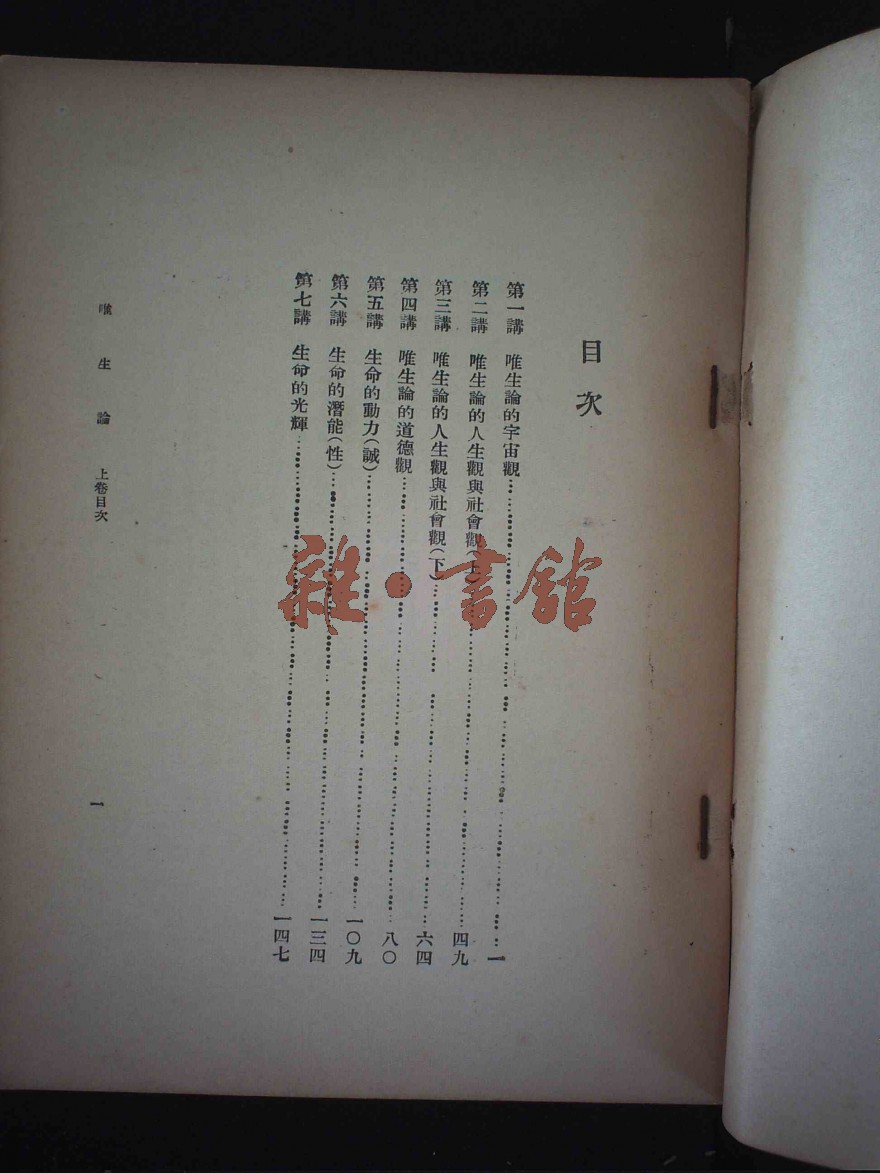 目次
第一講 唯生論的宇宙觀…一
第二講 唯生論的人生觀與社會觀(上)…四九
第三講 唯生論的人生觀與社會觀(下)…六四
第四講 唯生論的道德觀…八〇
第五講 生命的動力(誠)…一〇九
第六講 生命的潛能(性)…一三四
第七講 生命的光輝…一四七
唯生論 上卷目次 一
雜·書館